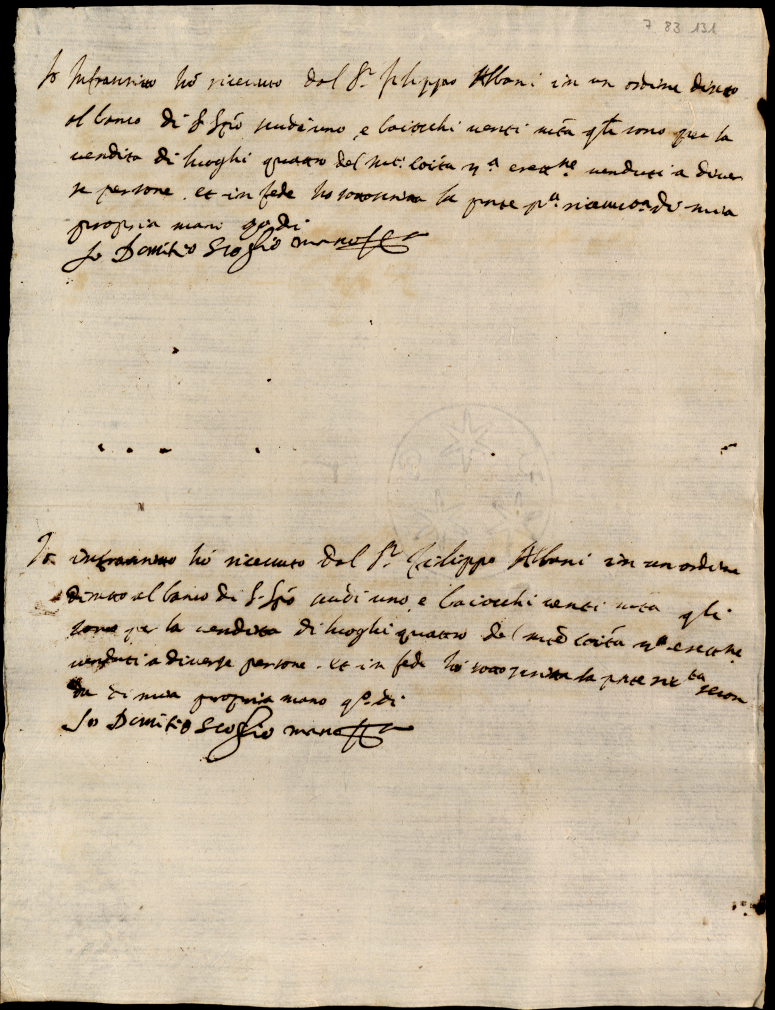 7 83 131
Io Infrascritto hò riceuuto dal S.r filippo Albani in un ordine diretto
al banco di S. Spõ scudi uno, e baiocchi uenti mta qli sono per la
vendita di luoghi quattro del mte Coita p.a erett.ne uenduti a diuer
se persone. et in fede ho sottoscritta la pnte p.a riceuuta di mia
propria mani q.o di
Io Domitio Scoglio mano
Io infrascritto hò riceuuto dal S.r Filippo Albani in un ordine
diretto al banco di S. Spõ scudi uno, e baiocchi uenti mta qli
sono per la uendita di luoghi quattro del mte Coita p.a erett.ne
uenduti a diuerse persone. et in fede hò sottoscritta la pnte
di mia propria mano q.o di
Io Domitio Scoglio mano